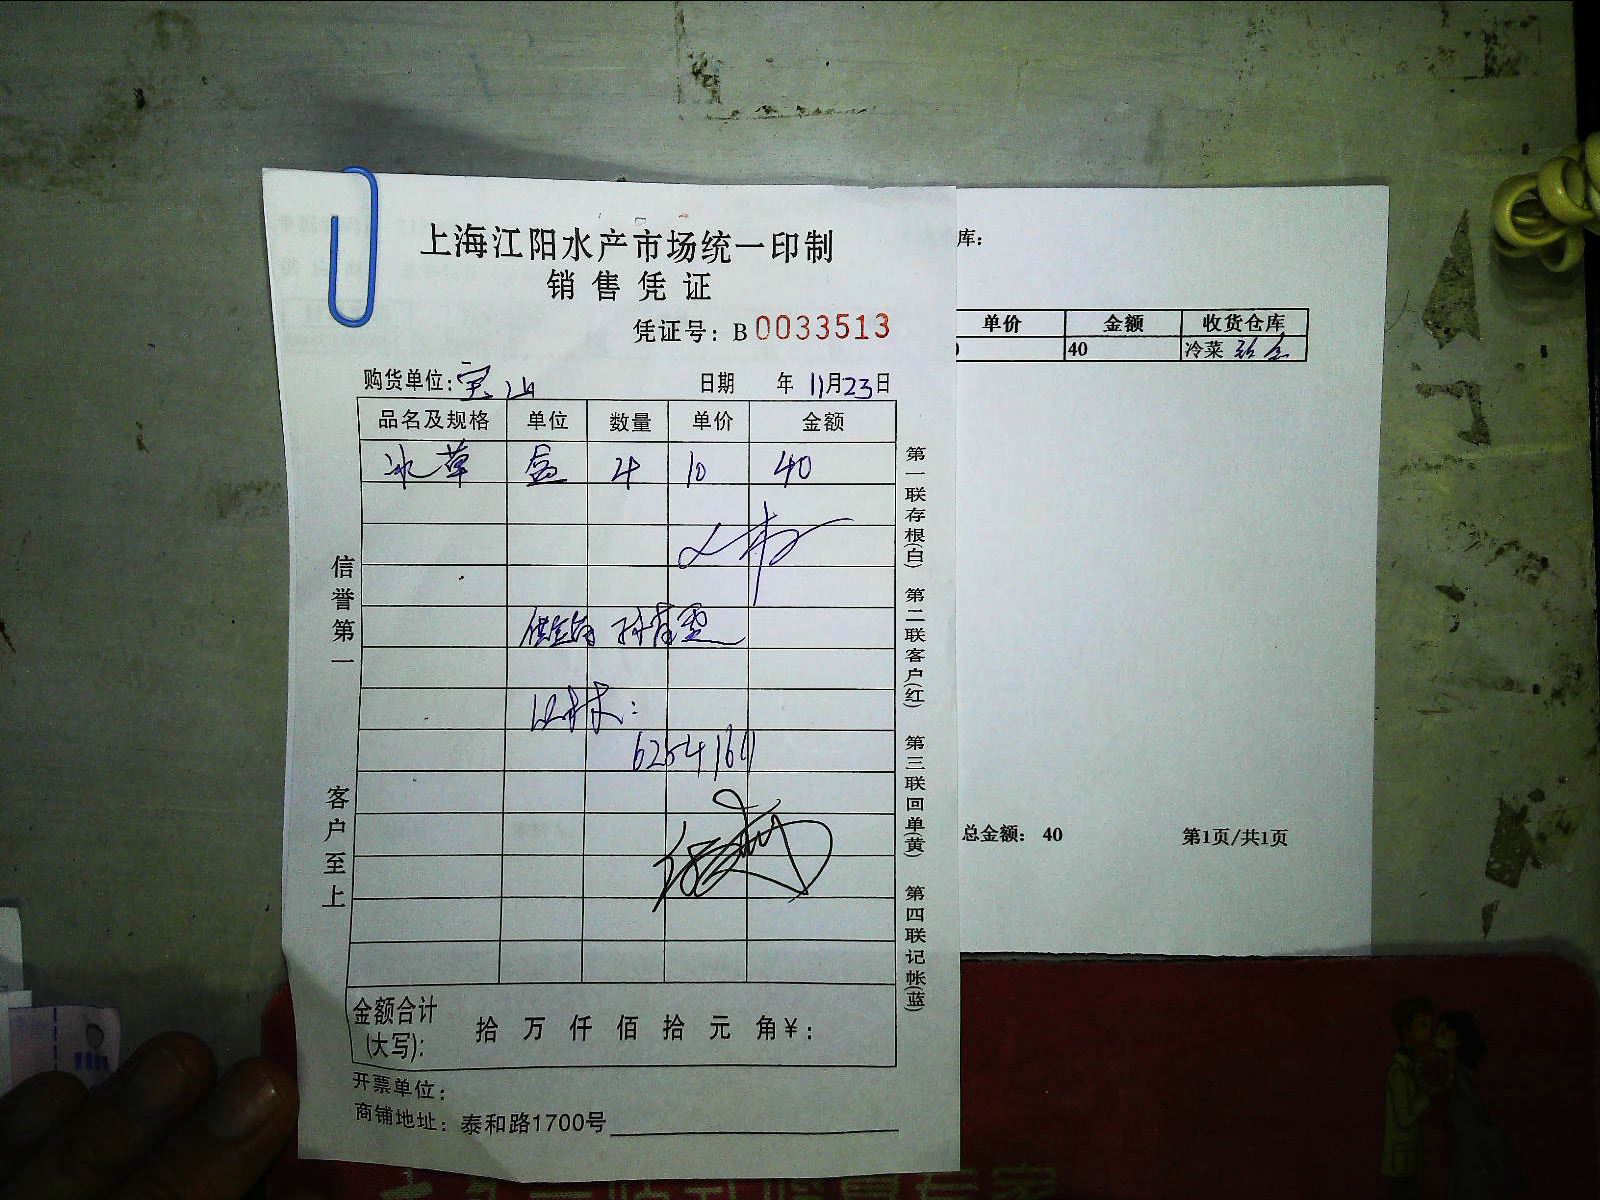 上海江阳水产市场统一印制
销售凭证
凭证号：B 0033513
购货单位：宝山 日期 年 11月23日
品名及规格 单位 数量 单价 金额
冰草 盒 4 10 40
信誉第一
客户至上
第一联存根(白) 第二联客户(红) 第三联回单(黄) 第四联记帐(蓝)
金额合计(大写)： 拾 万 仟 佰 拾 元 角 ¥：
开票单位：
商铺地址：泰和路1700号
库：
单价 金额 收货仓库
40 冷菜
总金额： 40 第1页/共1页